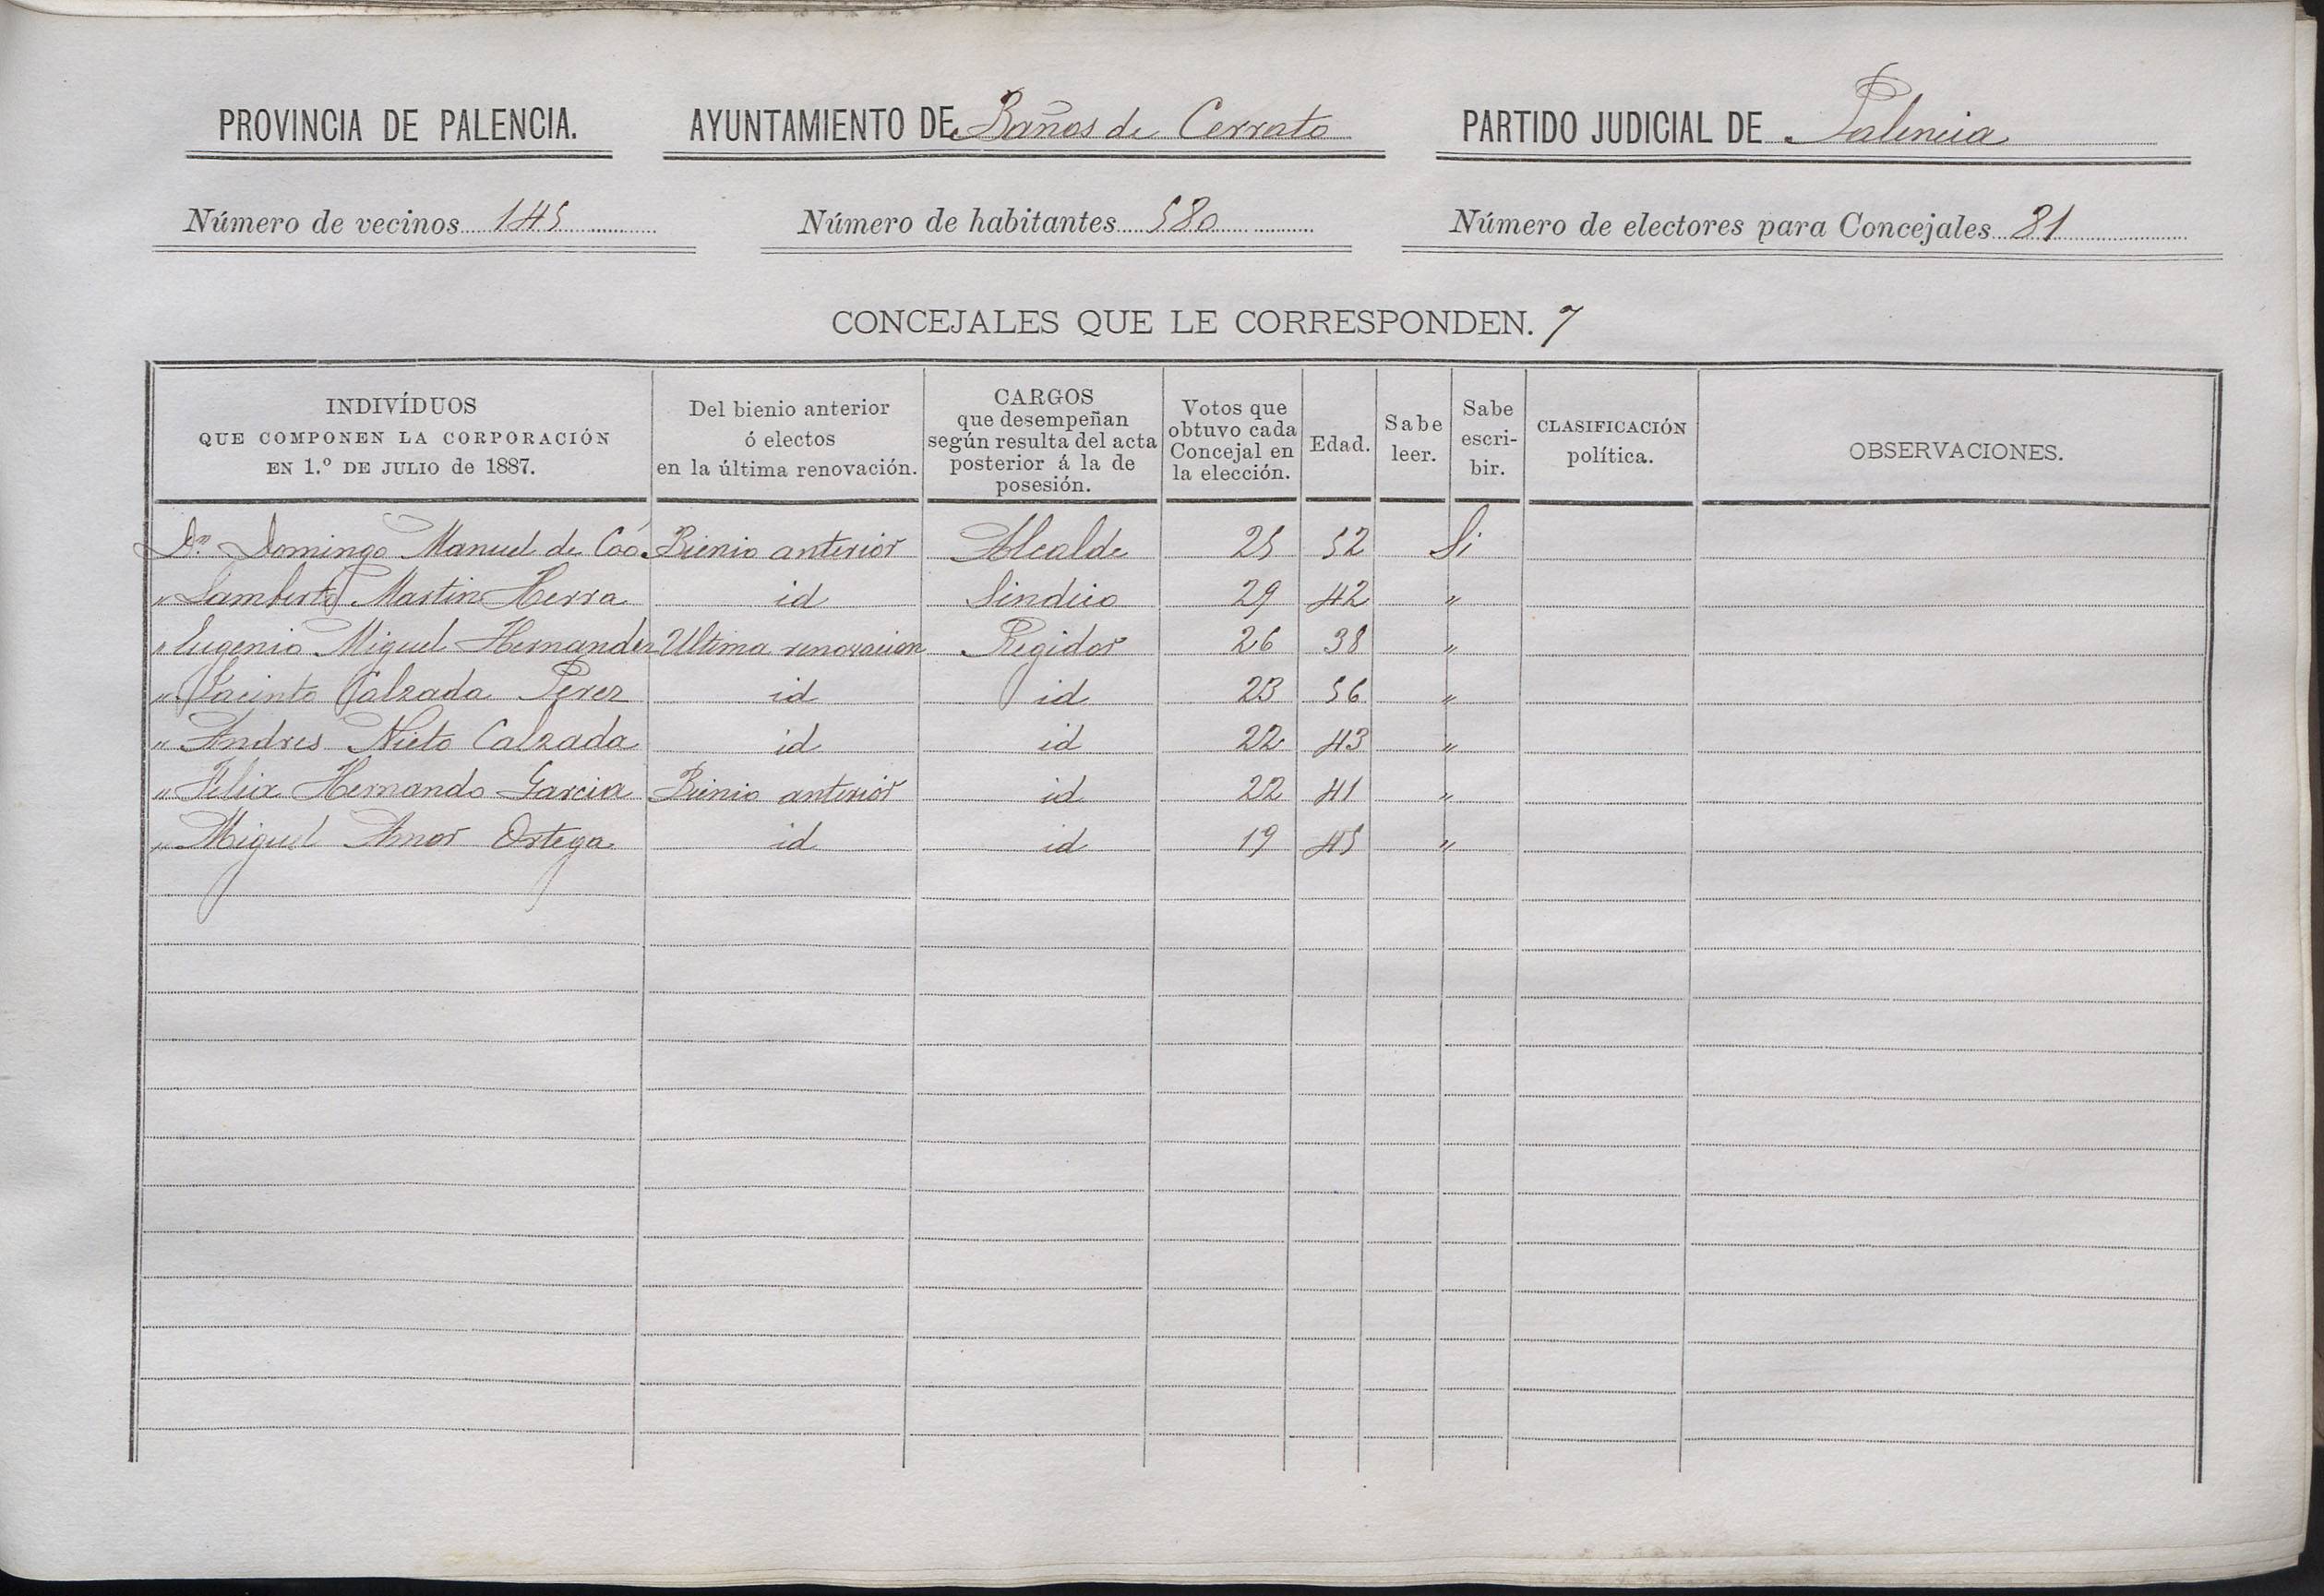 PROVINCIA DE PALENCIA. AYUNTAMIENTO DE Baños de Cerrato PARTIDO JUDICIAL DE Palencia
Número de vecinos 145 Número de habitantes 580 Número de electores para Concejales 81
CONCEJALES QUE LE CORRESPONDEN. 7
INDIVÍDUOS
QUE COMPONEN LA CORPORACIÓN
EN 1.º DE JULIO de 1887.
Del bienio anterior
ó electos
en la última renovación.
CARGOS
que desempeñan
según resulta del acta
posterior á la de
posesión.
Votos que
obtuvo cada
Concejal en
la elección.
Edad.
Sabe
leer.
Sabe
escri-
bir.
CLASIFICACIÓN
política.
OBSERVACIONES.
Dn Domingo Manuel de Coó Bienio anterior Alcalde 25 52 Si
" Lamberto Martin Herra id Sindico 29 42 "
" Eugenio Miguel Hernandez Ultima renovacion Regidor 26 38 "
" Jacinto Calzada Perez id id 23 56 "
" Andres Nieto Calzada id id 22 43 "
" Felix Hernando Garcia Bienio anterior id 22 41 "
" Miguel Amor Ortega id id 19 45 "